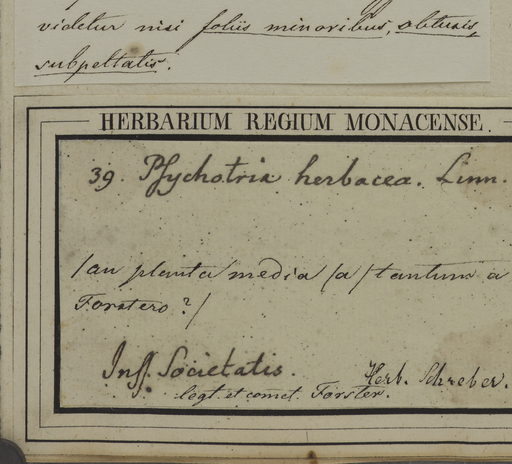 videtur nisi foliis minoribus, obtusis,
subpeltatis.
HERBARIUM REGIUM MONACENSE.
39. Psychotria herbacea. Linn.
/an planta media /a/ tantum a
Forstero?/
Inss. Societatis.
Herb. Schreber.
legt. et comct. Forster.